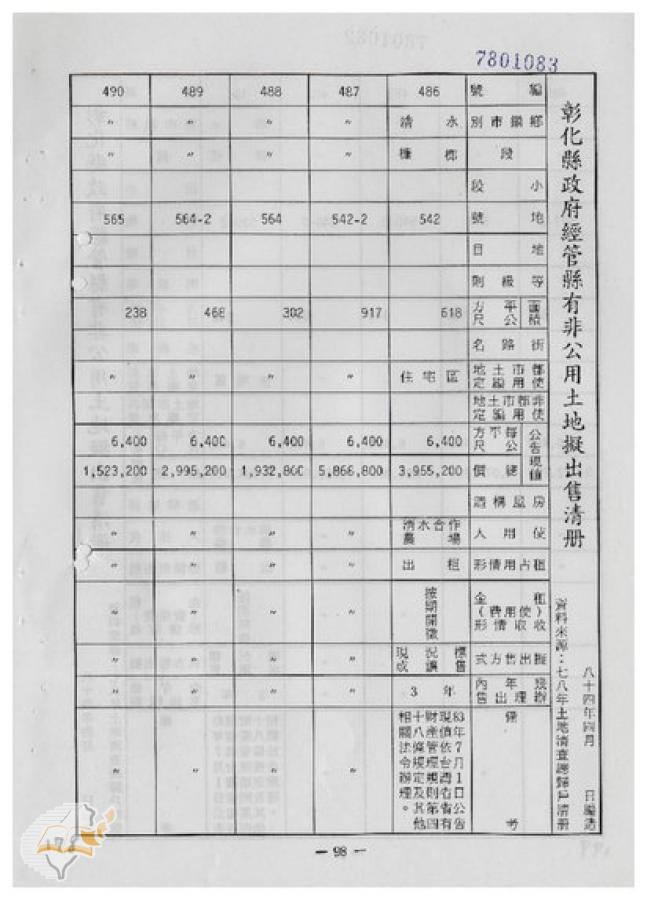 7801083
彰化縣政府經管縣有非公用土地擬出售清册
資料來源：七八年土地清查總歸戶清册
八十四年四月 日編造
編號 486 487 488 489 490
鄉鎮市別 清水 〃 〃 〃 〃
段 〃 〃 〃 〃
小段
地號 542 542-2 564 564-2 565
地目
等級則
面積 平方公尺 618 917 302 468 238
街路名
都市土地使用編定 住宅區 〃 〃 〃 〃
非都市土地使用編定
公告現值 每平方公尺 6,400 6,400 6,400 6,400 6,400
總價 3,955,200 5,868,800 1,932,800 2,995,200 1,523,200
房屋構造
使用人 清水合作農場 〃 〃 〃 〃
租占用情形 出租 〃 〃 〃 〃
租金（使用費）收取情形 按期開徵 〃 〃 〃 〃
擬出售方式 現況標售或讓售 〃 〃 〃 〃
幾年內辦理出售 3年 〃 〃 〃 〃
備考 83年7月1日公告現值依台灣省省有財產管理規則第四十八條規定及其他相關法令辦理。 〃 〃 〃 〃
— 98 —
178